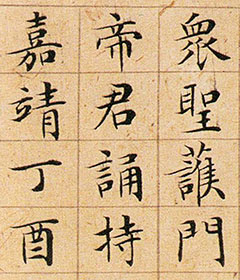 眾聖護門
帝君誦持
嘉靖丁酉